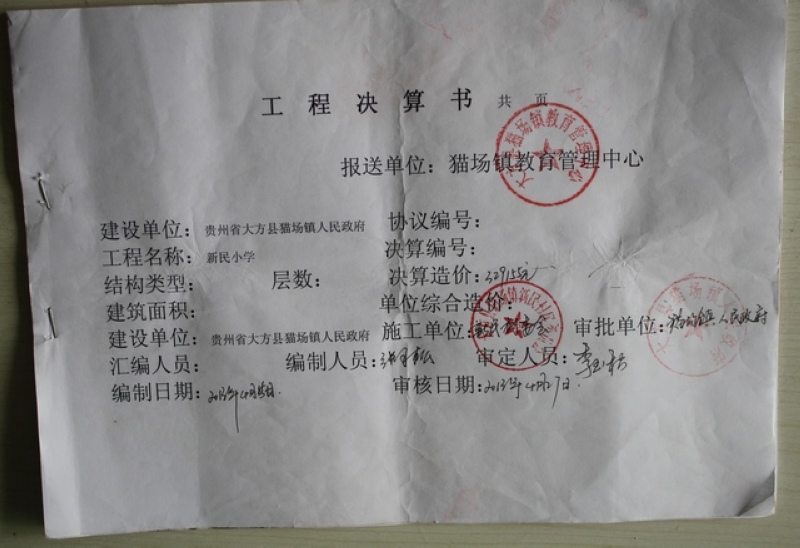 工程决算书 共 页
报送单位：猫场镇教育管理中心
建设单位：贵州省大方县猫场镇人民政府 协议编号：
工程名称：新民小学 决算编号：
结构类型： 层数： 决算造价：
建筑面积： 单位综合造价：
建设单位：贵州省大方县猫场镇人民政府 施工单位： 审批单位：猫场镇人民政府
汇编人员： 编制人员： 审定人员：
编制日期： 审核日期：2013年4月27日